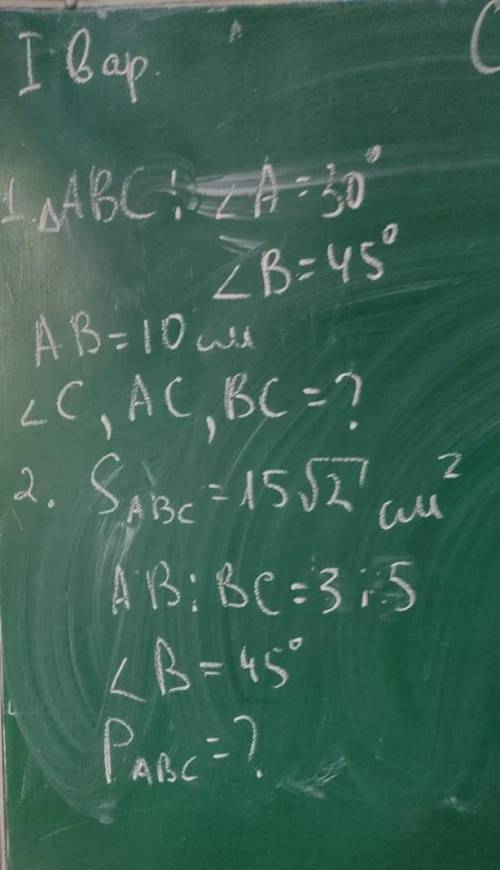 I вар.
1. △ABC: ∠A=30°
∠B=45°
AB=10 см
∠C, AC, BC=?
2. S_ABC=15√2 см²
AB:BC=3:5
∠B=45°
P_ABC=?